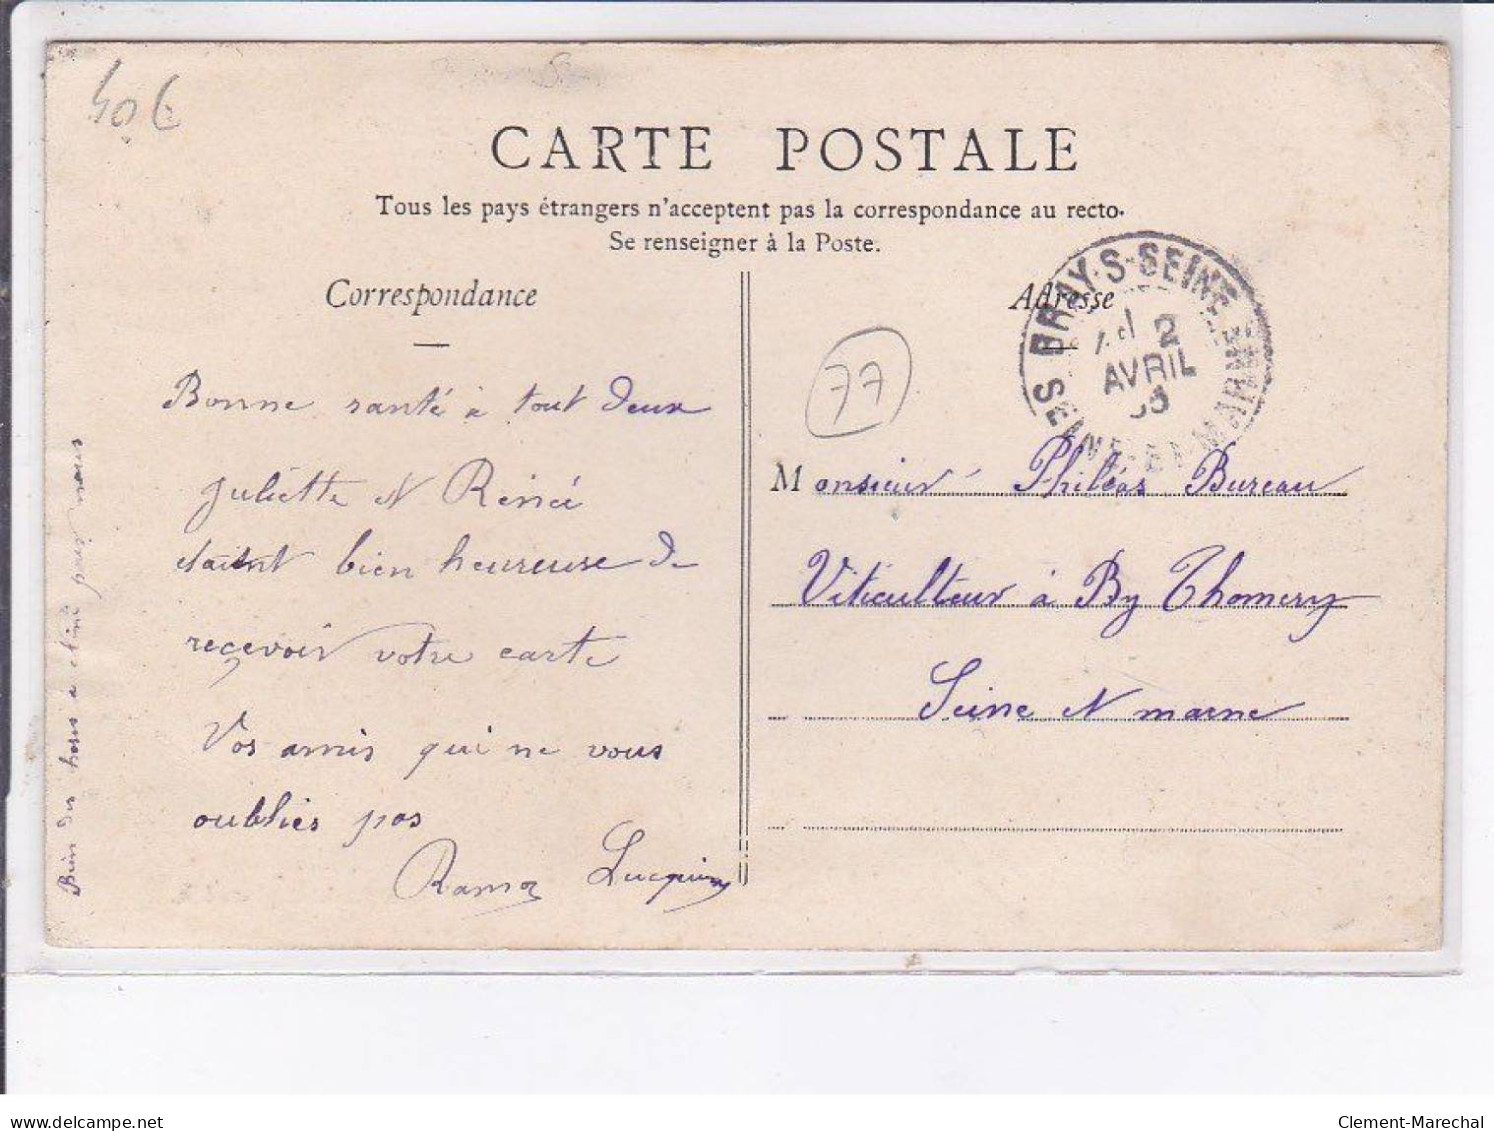 40€
CARTE POSTALE
Tous les pays étrangers n'acceptent pas la correspondance au recto.
Se renseigner à la Poste.
Correspondance
Adresse
BRAY-S-SEINE
2
AVRIL
SEINE ET MARNE
77
Bonne santé a tout deux
juliette et Renée
etaient bien heureuse de
reçevoir votre carte
Vos amis qui ne vous
oublies pas
Lucquin
Bien des
pour nous
Monsieur Philéas Bureau
Viticulteur à By Thomery
Seine et marne
delcampe.net
Clement-Marechal